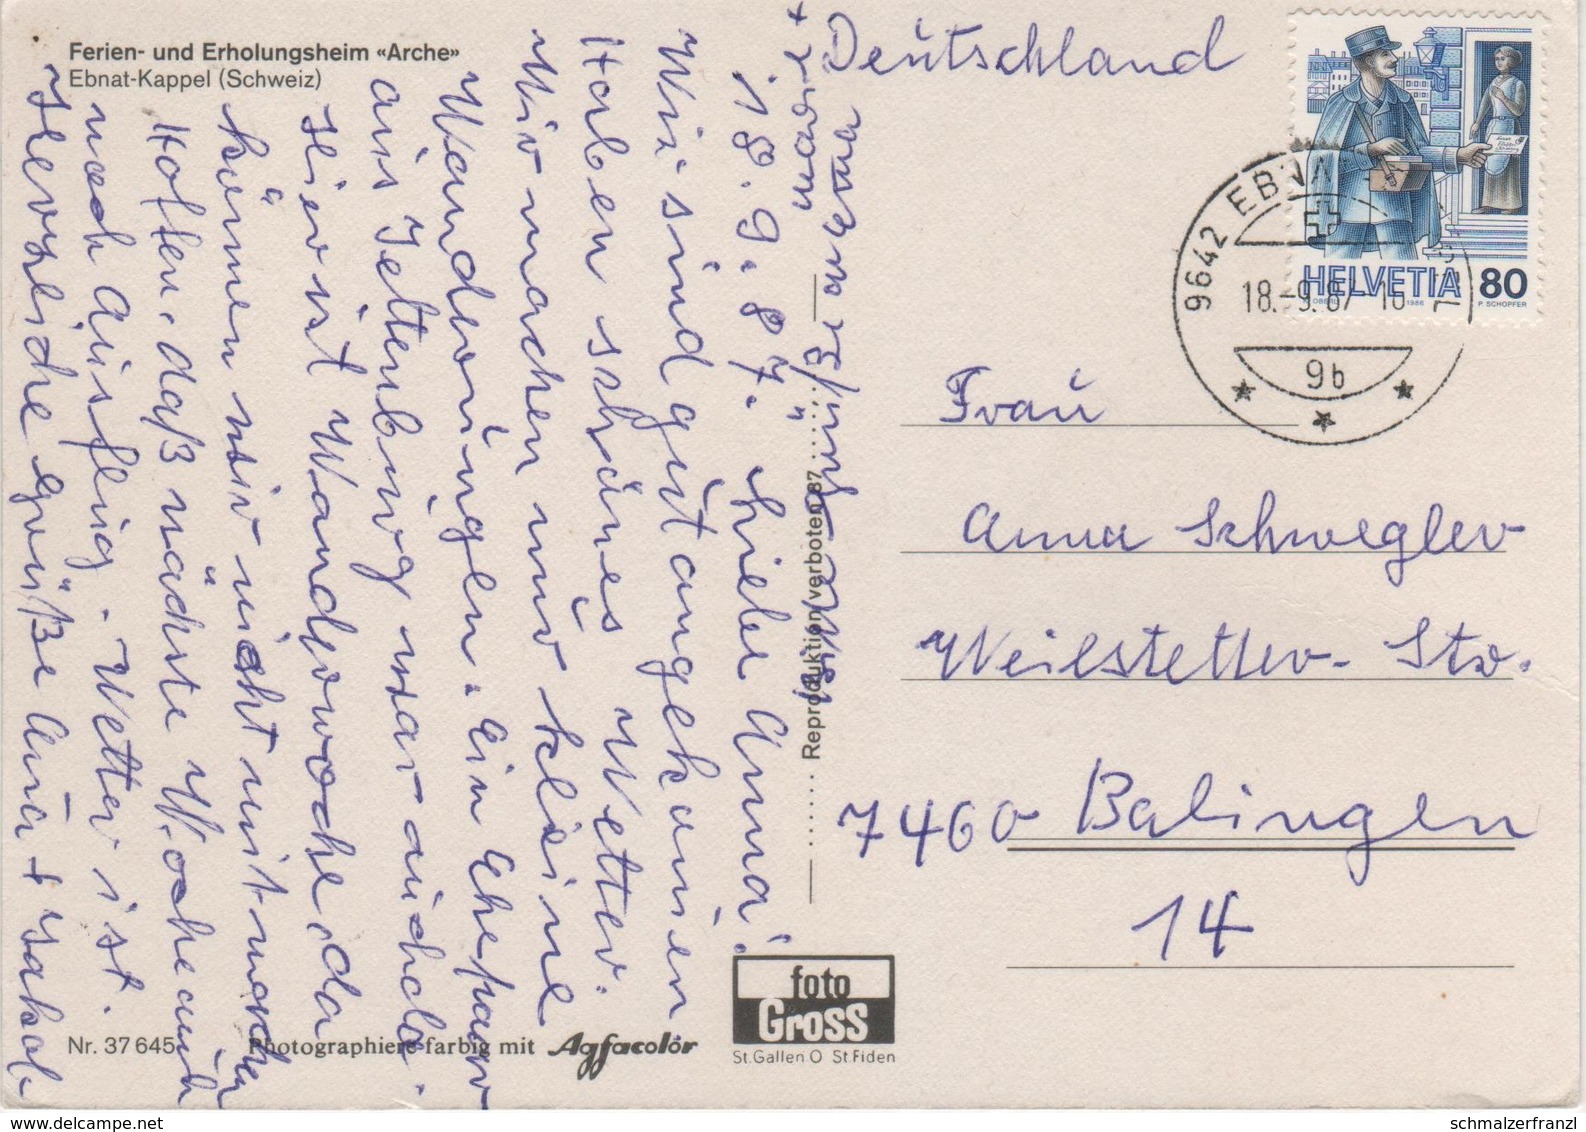 Ferien- und Erholungsheim «Arche»
Ebnat-Kappel (Schweiz)
18.9.87. Liebe Anna!
Wir sind gut angekommen
Haben schönes Wetter.
Wir machen nur kleine
Wanderungen. Ein Ehepaar
aus Jettenburg war auch da.
Hier ist Wanderwoche, da
können wir nicht mitmachen
Hoffen, daß nächste Woche auch
noch Ausflug. Wetter ist.
Herzliche Grüße Anna + Jakob
Reproduktion verboten 87
Nr. 37 645
Photographiere farbig mit Agfacolor
foto
Gross
St. Gallen O St Fiden
Deutschland
9642 EBNAT-
18.-9.87-16
9b
HELVETIA 80
K. OBERLI 1986 P. SCHOPFER
Frau
Anna Schwegler
Weilstetter-Str.
7460 Balingen
14